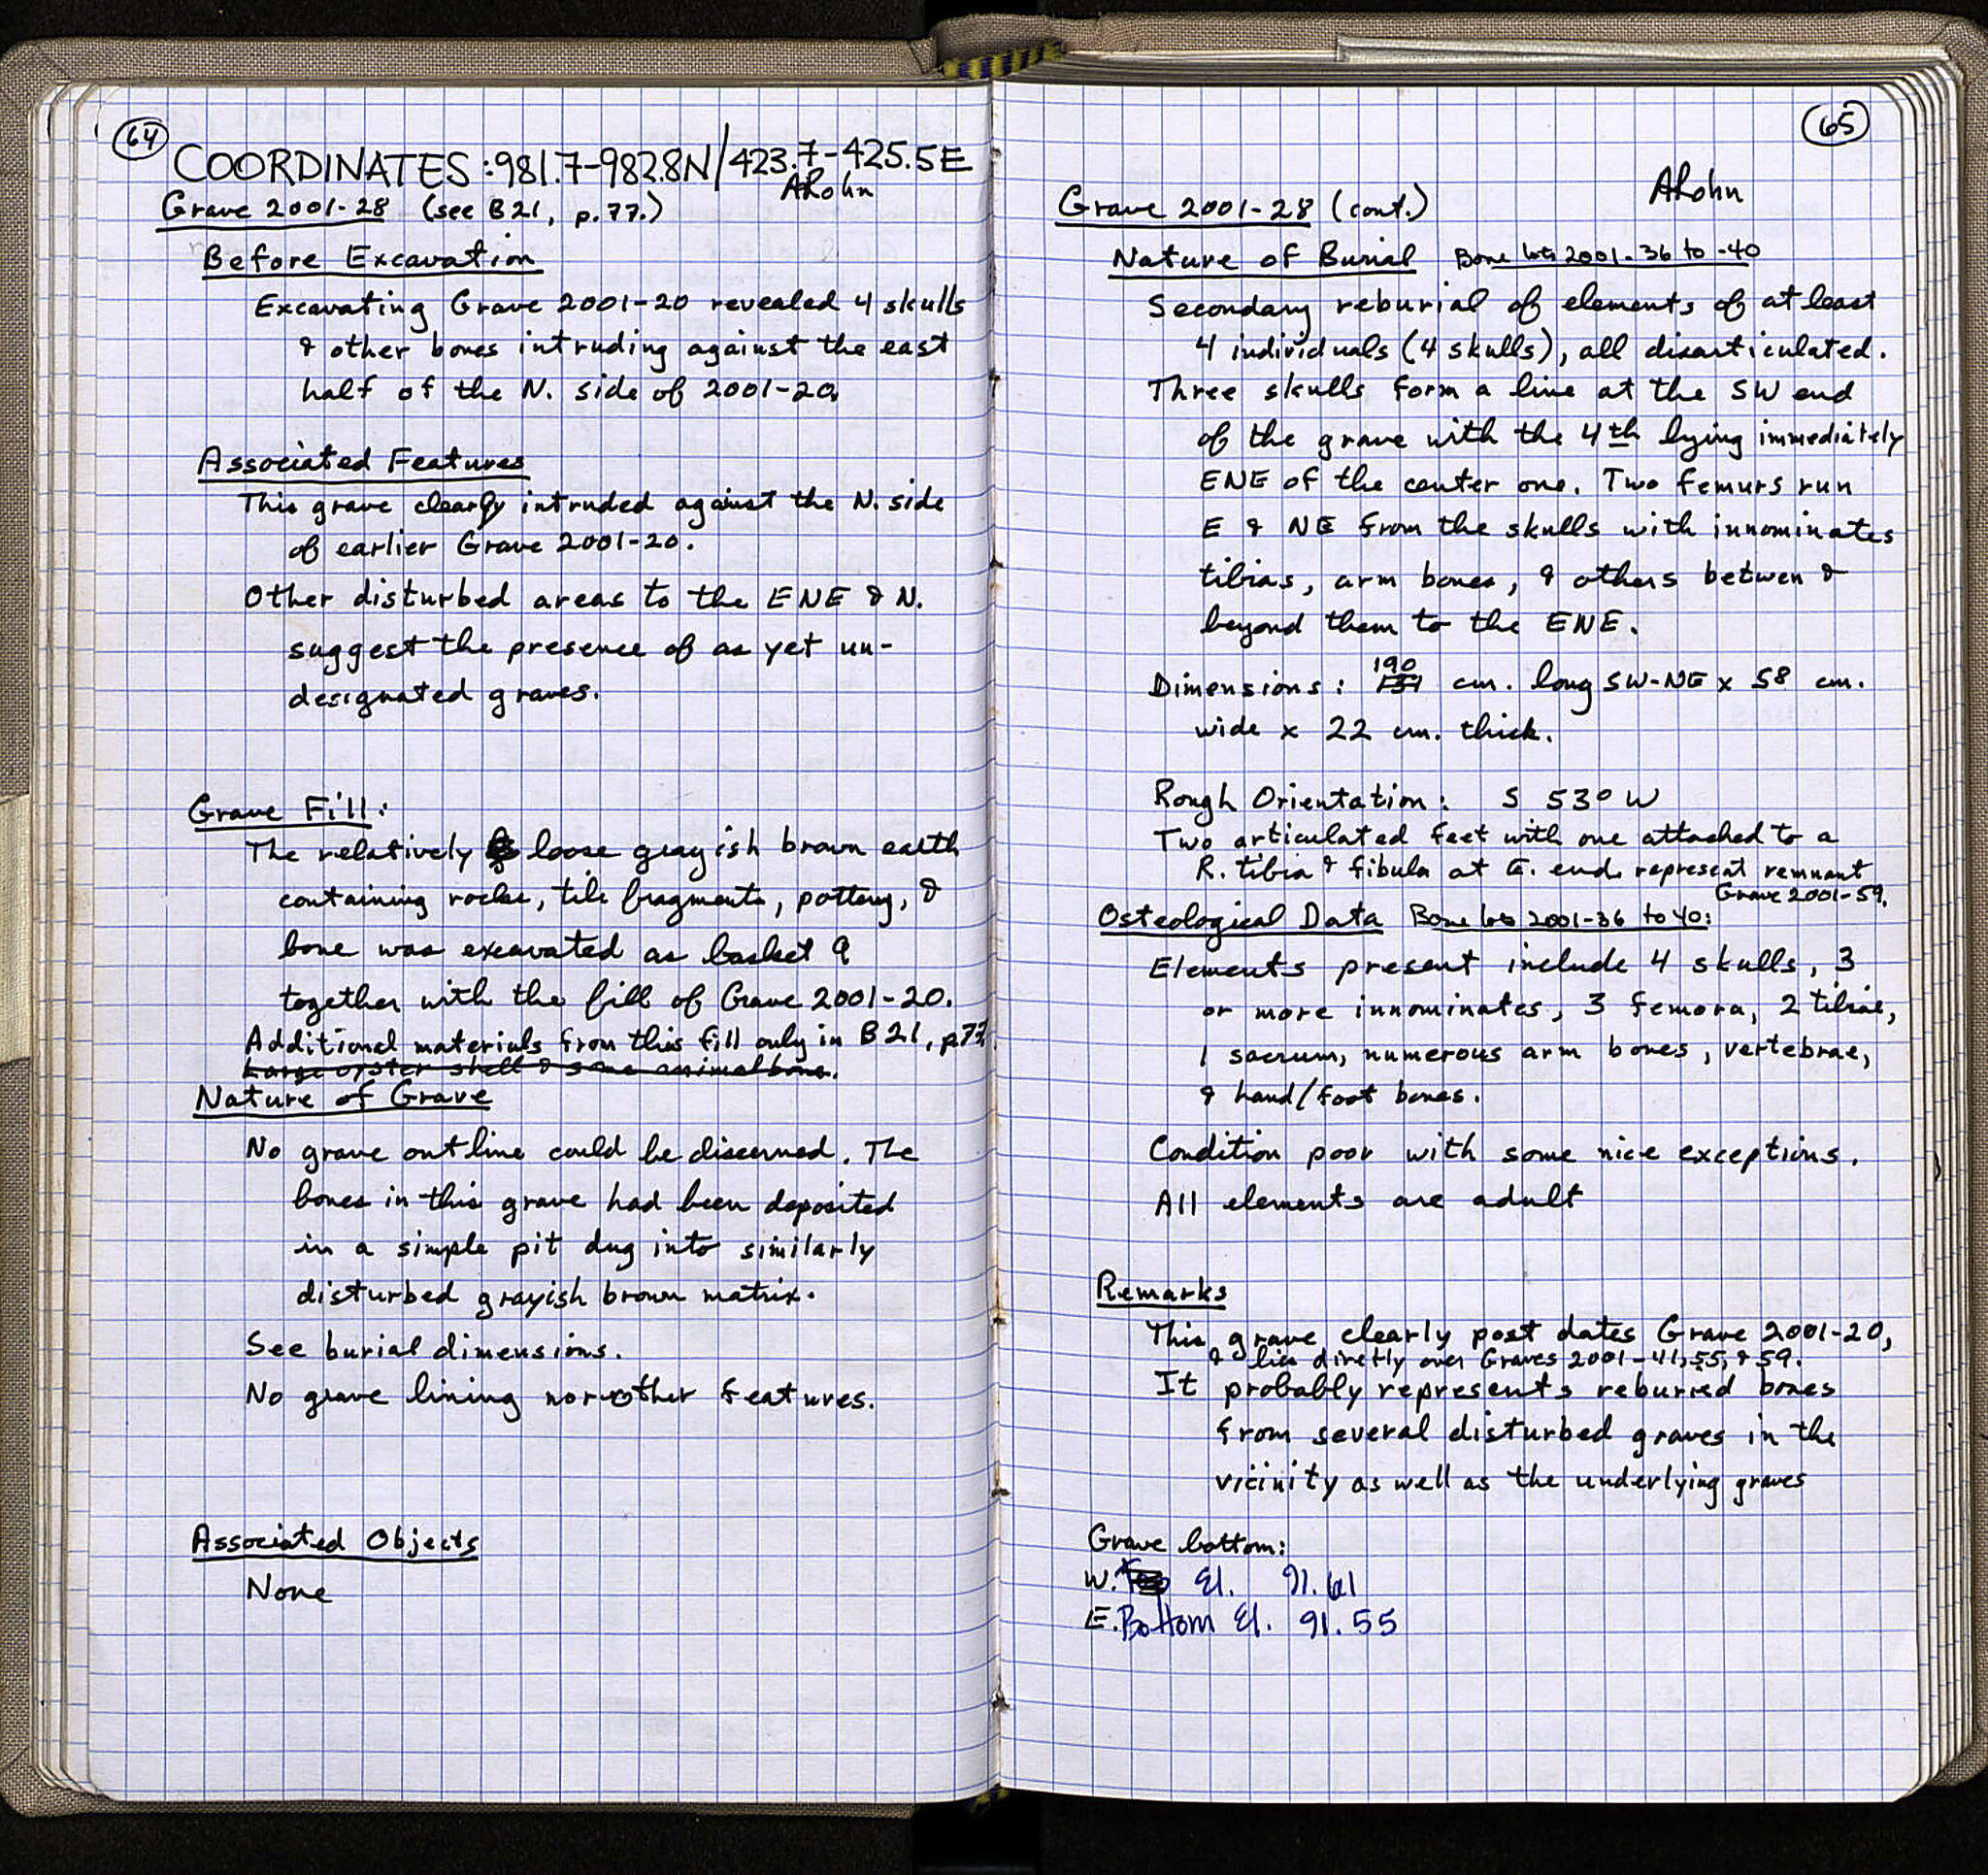 64
COORDINATES: 981.7-982.8N/423.7-425.5E
ARohn
Grave 2001-28 (see B21, p.77.)
Before Excavation
Excavating Grave 2001-20 revealed 4 skulls
& other bones intruding against the east
half of the N. side of 2001-20.
Associated Features
This grave clearly intruded against the N. side
of earlier Grave 2001-20.
Other disturbed areas to the ENE & N.
suggest the presence of as yet un-
designated graves.
Grave Fill:
The relatively loose grayish brown earth
containing rocks, tile fragments, pottery, &
bone was excavated as basket 9
together with the fill of Grave 2001-20.
Additional materials from this fill only in B21, p.77
Large oyster shell & some animal bone.
Nature of Grave
No grave outline could be discerned. The
bones in this grave had been deposited
in a simple pit dug into similarly
disturbed grayish brown matrix.
See burial dimensions.
No grave lining nor other features.
Associated Objects
None
65
ARohn
Grave 2001-28 (cont.)
Nature of Burial Bone lots 2001-36 to -40
Secondary reburial of elements of at least
4 individuals (4 skulls), all disarticulated.
Three skulls form a line at the SW end
of the grave with the 4th lying immediately
ENE of the center one. Two femurs run
E & NE from the skulls with innominates
tibias, arm bones, & others betwen &
beyond them to the ENE.
190
Dimensions: cm. long SW-NE x 58 cm.
wide x 22 cm. thick.
Rough Orientation: S 53° W
Two articulated feet with one attached to a
R. tibia & fibula at E. end. represent remnant
Grave 2001-59.
Osteological Data Bone lots 2001-36 to 40:
Elements present include 4 skulls, 3
or more innominates, 3 femora, 2 tibiae,
1 sacrum, numerous arm bones, vertebrae,
& hand/foot bones.
Condition poor with some nice exceptions.
All elements are adult
Remarks
This grave clearly post dates Grave 2001-20,
& lies directly over Graves 2001-41, 55, & 59.
It probably represents reburied bones
from several disturbed graves in the
vicinity as well as the underlying graves
Grave bottom:
W. El. 91.61
E. Bottom El. 91.55